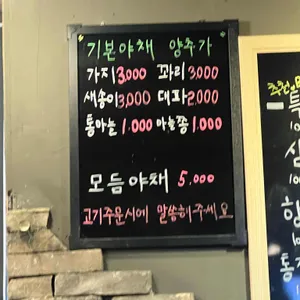 기본야채 양추가
가지 3,000 꽈리 3,000
새송이 3,000 대파 2,000
통마늘 1.000 마늘쫑 1.000
모듬야채 5.000
고기주문시에 말씀해주세요
추천
특
삼
항
통